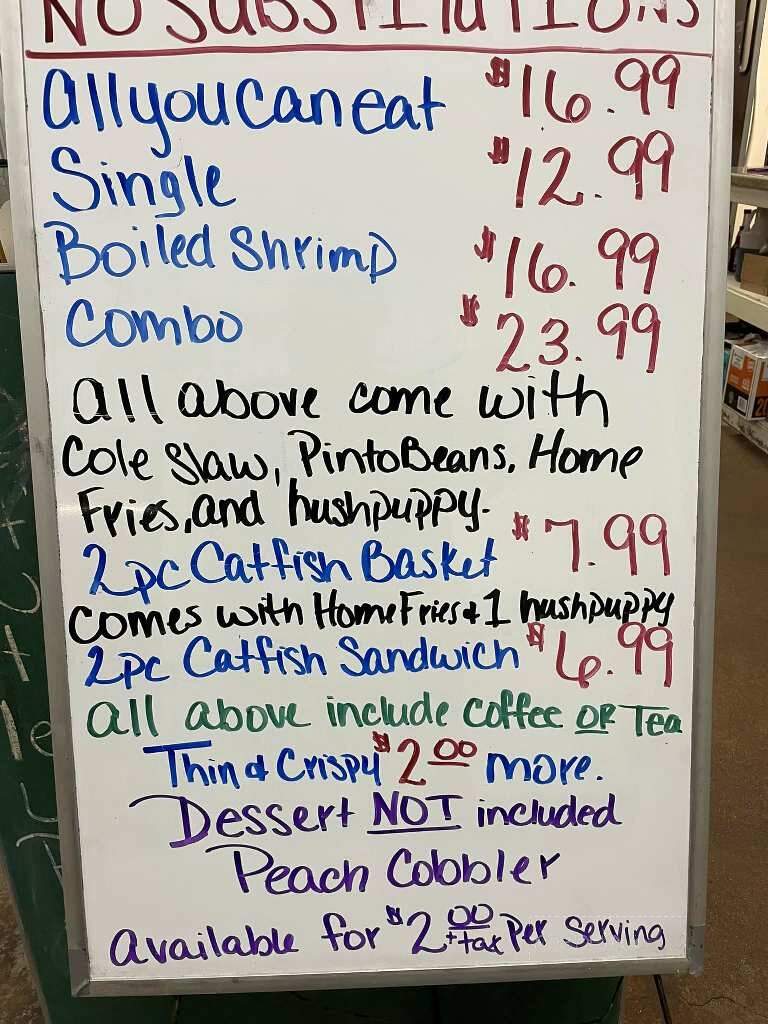 NO SUBSTITUTIONS
All you can eat $16.99
Single $12.99
Boiled Shrimp $16.99
Combo $23.99
All above come with
Cole Slaw, Pinto Beans, Home
Fries, and hushpuppy.
2pc Catfish Basket $7.99
Comes with Home Fries & 1 hushpuppy
2pc Catfish Sandwich $6.99
All above include Coffee OR Tea
Thin & Crispy $2.00 more.
Dessert NOT included
Peach Cobbler
Available for $2.00 + tax Per Serving